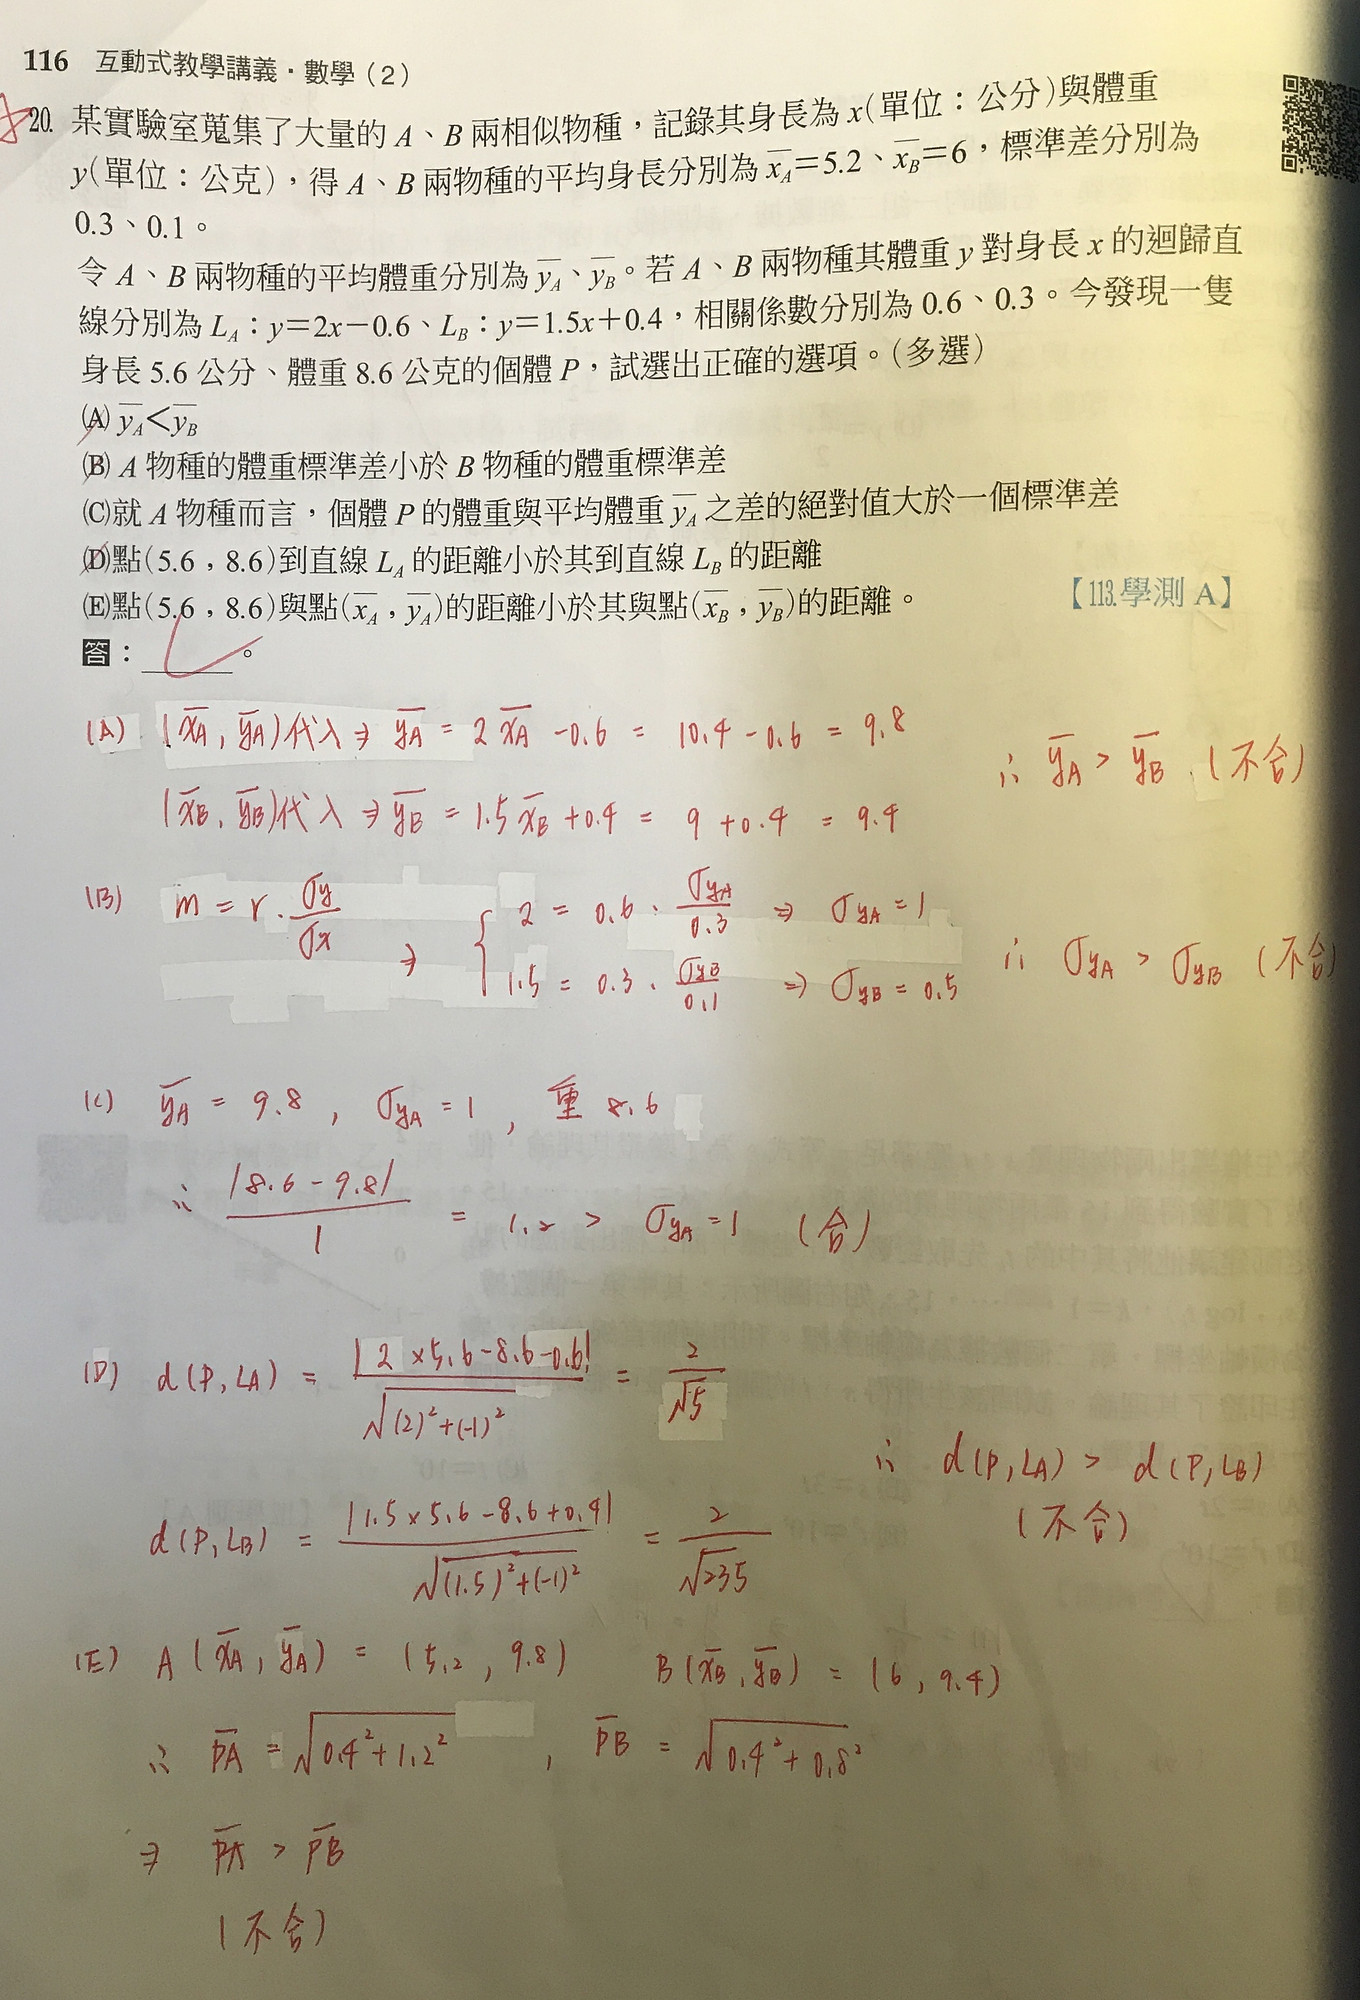 116 互動式教學講義・數學(2)
20. 某實驗室蒐集了大量的 A、B 兩相似物種，記錄其身長為 x(單位：公分)與體重
y(單位：公克)，得 A、B 兩物種的平均身長分別為 x̄_A=5.2、x̄_B=6，標準差分別為
0.3、0.1。
令 A、B 兩物種的平均體重分別為 ȳ_A、ȳ_B。若 A、B 兩物種其體重 y 對身長 x 的迴歸直
線分別為 L_A：y=2x−0.6、L_B：y=1.5x+0.4，相關係數分別為 0.6、0.3。今發現一隻
身長 5.6 公分、體重 8.6 公克的個體 P，試選出正確的選項。(多選)
(A) ȳ_A<ȳ_B
(B) A 物種的體重標準差小於 B 物種的體重標準差
(C)就 A 物種而言，個體 P 的體重與平均體重 ȳ_A 之差的絕對值大於一個標準差
(D)點(5.6，8.6)到直線 L_A 的距離小於其到直線 L_B 的距離
(E)點(5.6，8.6)與點(x̄_A，ȳ_A)的距離小於其與點(x̄_B，ȳ_B)的距離。 【113.學測 A】
答：______。
(A) (x̄A, ȳA)代入 ⇒ ȳA = 2x̄A −0.6 = 10.4−0.6 = 9.8
∴ ȳA > ȳB (不合)
(x̄B, ȳB)代入 ⇒ ȳB = 1.5x̄B+0.4 = 9+0.4 = 9.4
(B) m = r·σy/σx ⇒ { 2 = 0.6·σyA/0.3 ⇒ σyA=1
1.5 = 0.3·σyB/0.1 ⇒ σyB=0.5 ∴ σyA > σyB (不合)
(C) ȳA = 9.8, σyA=1, 重 8.6
∴ |8.6−9.8|/1 = 1.2 > σyA=1 (合)
(D) d(P,LA) = |2×5.6−8.6−0.6|/√((2)²+(-1)²) = 2/√5
∴ d(P,LA) > d(P,LB)
(不合)
d(P,LB) = |1.5×5.6−8.6+0.4|/√((1.5)²+(-1)²) = 2/√235
(E) A(x̄A, ȳA) = (5.2, 9.8) B(x̄B, ȳB) = (6, 9.4)
∴ P̄Ā = √(0.4²+1.2²), P̄B̄ = √(0.4²+0.8²)
⇒ P̄Ā > P̄B̄
(不合)